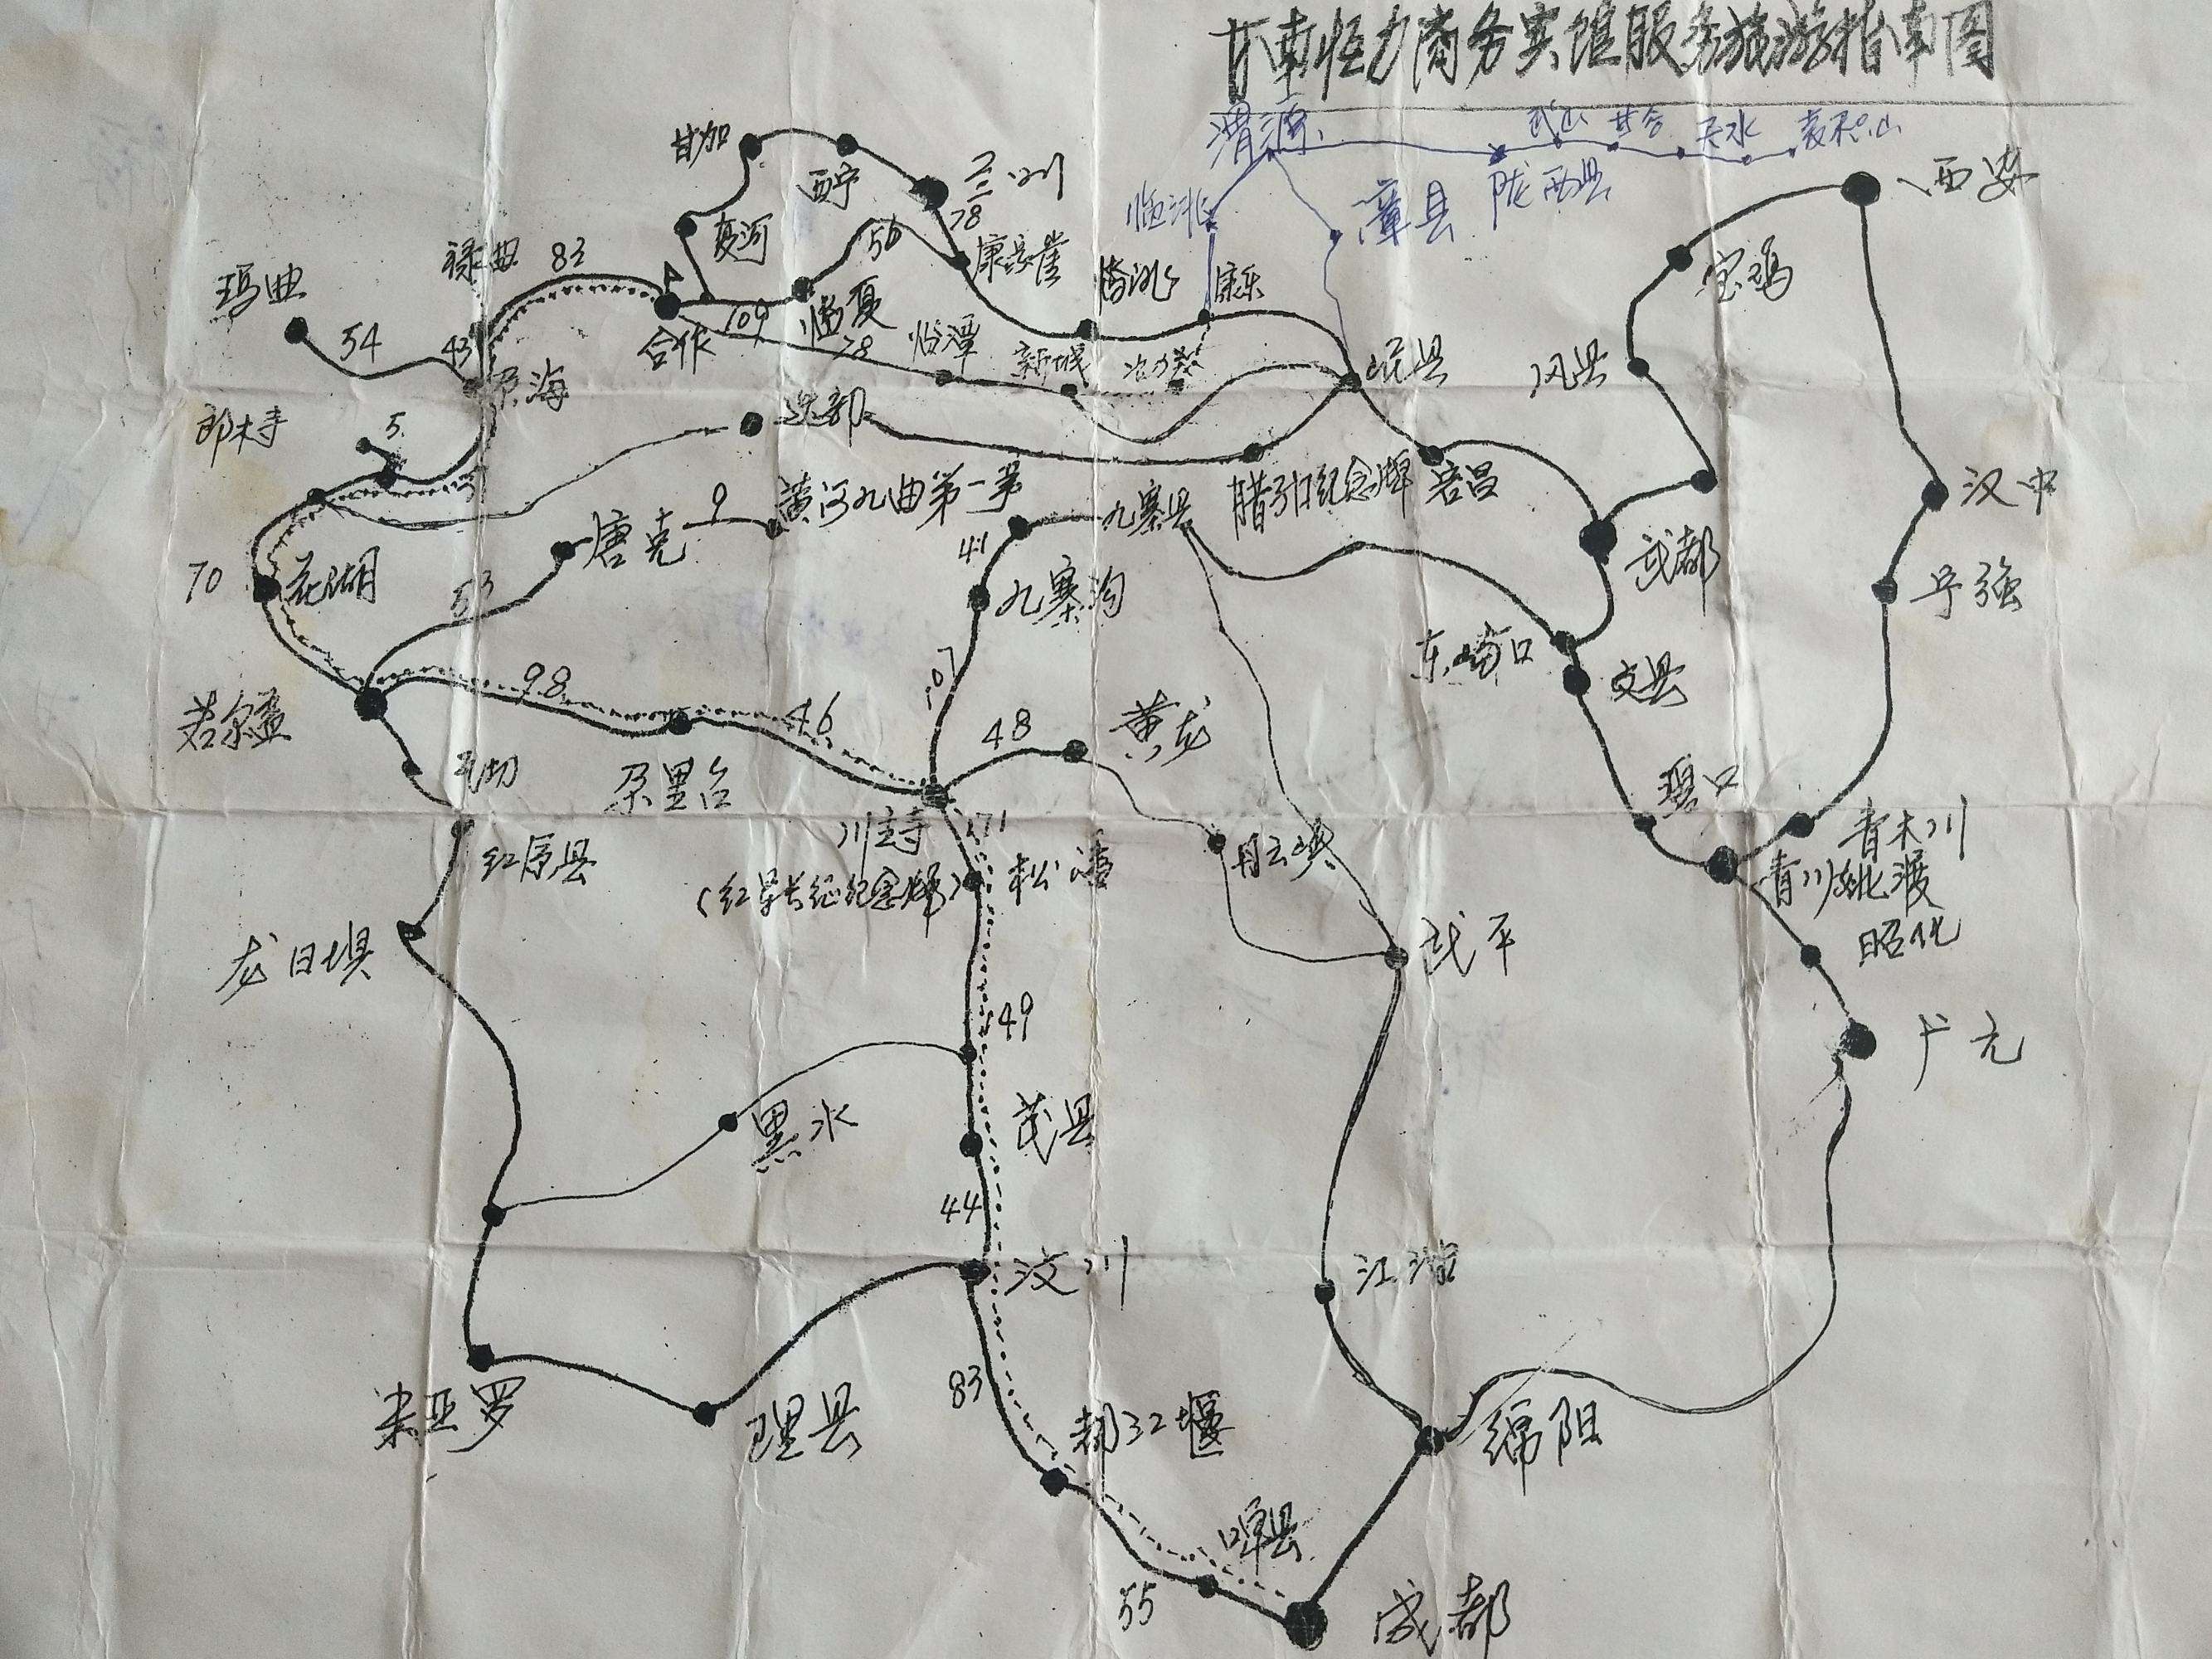 甘南恒力商务宾馆服务旅游指南图
渭源
武山
甘谷
天水
麦积山
陇西县
漳县
临洮
甘加
西宁
兰州
西安
夏河
78
56
康乐崖
临洮
康乐
宝鸡
禄曲
83
玛曲
54
43
尕海
合作
109
临夏
78
临潭
新城
冶力关
岷县
凤县
郎木寺
5
迭部
腊子口纪念牌
宕昌
汉中
黄河九曲第一弯
9
唐克
41
九寨县
武都
70
花湖
53
九寨沟
宁强
东峪口
文县
107
若尔盖
98
46
48
黄龙
瓦切
尕里台
碧口
川主寺
171
红原县
(红军长征纪念牌)
松潘
丹云峡
青木川
青川姚渡
昭化
龙日坝
武平
149
广元
黑水
茂县
44
汶川
江油
83
米亚罗
理县
都江堰
绵阳
郫县
55
成都